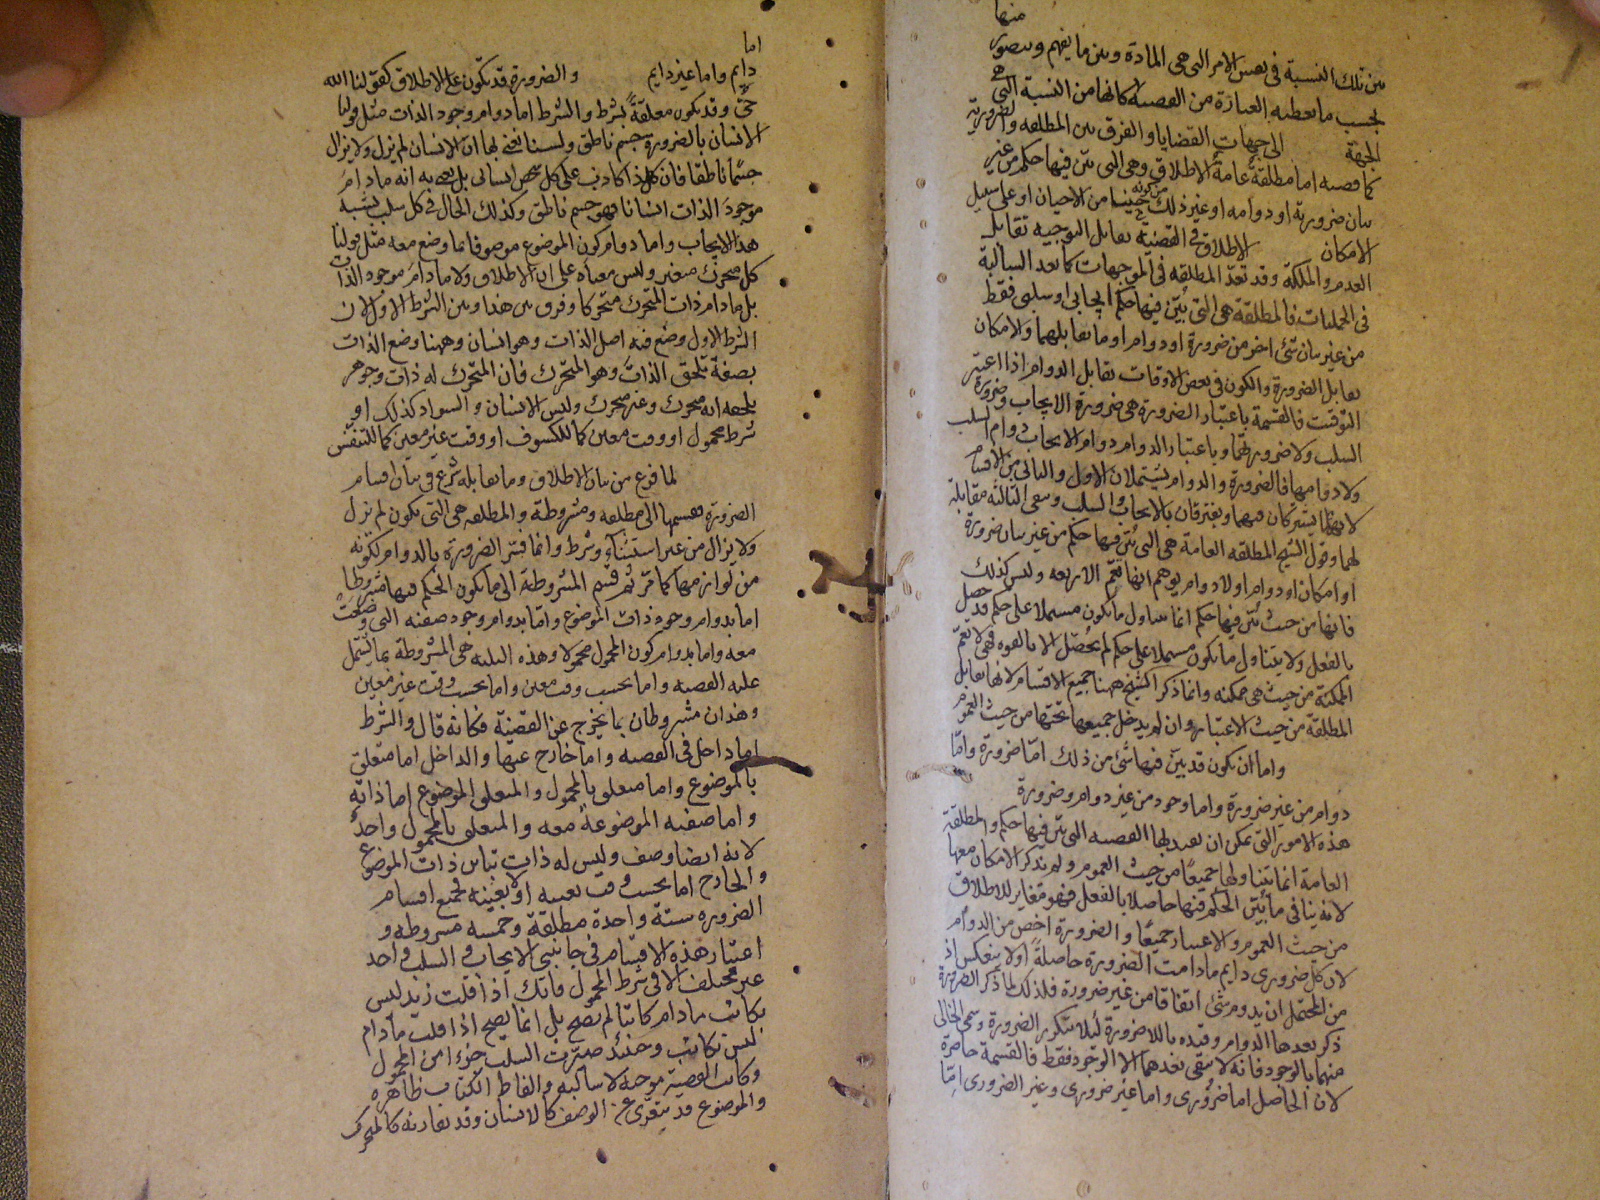 منها
بين تلك النسبة في نفس الامر التى هى المادة وبين ما يفهم ويتصور
بحسب ما يعطيه العبارة من القضية كانها من النسبة التى هى
الجهة الى جهات القضايا والفرق بين المطلقه والضرورية
كل قضيه اما مطلقة عامة الاطلاق وهى التى بيّن فيها حكم من غير
بيان ضرورته او دوامه او غير ذلك من كونه حينا من الاحيان او على سبيل
الامكان الاطلاق في القضية يقابل التوجيه تقابل
العدم والملكة وقد تعد المطلقه في الموجهات كما تعد السالبة
في الحمليات فالمطلقة هى التى بيّن فيها حكم ايجابى او سلبى فقط
من غير بيان شئ اخر من ضرورة او دوام او ما يقابلهما والامكان
يقابل الضرورة والكون في بعض الاوقات يقابل الدوام اذا اعتبر
التوقيت فالقسمة باعتبار الضرورة هى ضرورة الايجاب وضرورة
السلب ولا ضرورتهما وباعتبار الدوام دوام الايجاب ودوام السلب
ولا دوامهما فالضرورة والدوام يشتملان الاول والثانى من الاقسام
لانهما يشتركان فيهما ويفترقان بالايجاب والسلب وبقى الثالثه مقابلة
لهما وقول الشيخ المطلقه العامة هى التى بيّن فيها حكم من غير بيان ضرورة
او امكان او دوام او لا دوام يوهم انها تعمّ الاربعه وليس كذلك
فانها من حيث بيّن فيها حكم انما يتناول ما يكون مشتملا على حكم قد حصل
بالفعل ولا يتناول ما يكون مشتملا على حكم لم يحصّل الا بالقوه فهى لا تعمّ
الممكنة من حيث هى ممكنه وانما ذكر الشيخ ههنا جميع الاقسام لانها يقابل
المطلقة من حيث الاعتبار وان لم يدخل جميعها تحتها من حيث العموم
واما ان يكون قد بيّن فيها شئ من ذلك امّا ضرورة وامّا
دوام من غير ضرورة واما وجود من غير دوام وضرورة
هذه الامور التى يمكن ان تقيد بها القضيه التى بيّن فيها حكم والمطلقة
العامة انما يتناولها جميعًا من حيث العموم ولم يذكر الامكان معها
لانه ينافى ما بيّن الحكم فيها حاصلا بالفعل فهو مغاير للاطلاق
من حيث العموم والاعتبار جميعًا والضرورة اخص من الدوام
لان كل ضرورى دايم ما دامت الضرورة حاصلة ولا ينعكس اذ
من المحتمل ان يدوم شئ اتفاقا من غير ضرورة فلذلك لما ذكر الضرورة
ذكر بعدها الدوام وقيده باللا ضرورة لئلا يتكرر الضرورة وسمى الخالى
منهما بالوجود فانه لا يبقى بعدهما الا الوجود فقط فالقسمة حاصرة
لان الحاصل اما ضرورى واما غير ضرورى وغير الضرورى امّا
اما
دايم واما غير دايم والضرورة قد تكون على الاطلاق كقولنا الله
حىّ وقد يكون معلقةً بشرط والشرط اما دوام وجود الذات مثل قولنا
الانسان بالضرورة جسم ناطق ولسنا نعنى بها ان الانسان لم يزل ولا يزال
جسمًا ناطقا فان هذا كاذب على كل شخص انسانى بل نعنى به انه ما دام
موجود الذات انسانا فهو جسم ناطق وكذلك الحال في كل سلب يشبه
هذا الايجاب واما دوام كون الموضوع موصوفا بما وضع معه مثل قولنا
كل متحرك متغير وليس معناه على الاطلاق ولا ما دام موجود الذات
بل ما دام ذات المتحرك متحركا وفرق بين هذا وبين الشرط الاول لان
الشرط الاول وضع فيه اصل الذات وهو انسان وههنا وضع الذات
بصفة تلحق الذات وهو المتحرك فان المتحرك له ذات وجوهر
يلحقه انه متحرك وغير متحرك وليس الانسان والسواد كذلك او
شرط محمول او وقت معين كما للكسوف او وقت غير معين كما للتنفس
لما فرغ من بيان الاطلاق وما يقابله شرع في بيان اقسام
الضرورة فقسمها الى مطلقه ومشروطة والمطلقه هى التى تكون لم يزل
ولا يزال من غير استثناء وشرط وانما فسر الضرورة بالدوام لكونه
من لوازمها كما مر ثم قسم المشروطة الى ما يكون الحكم فيها مشروطا
اما بدوام وجود ذات الموضوع واما بدوام وجود صفته التى وضعت
معه واما بدوام كون المحمول محمولا وهذه الثلثه هى المشروطة بما يشتمل
عليه القضيه واما بحسب وقت معين واما بحسب وقت غير معين
وهذان مشروطان بما يخرج عن القضية فكانه قال والشرط
اما داخل في القضيه واما خارج عنها والداخل اما متعلق
بالموضوع واما متعلق بالمحمول والمتعلق بالموضوع اما ذاته
واما صفته الموضوعة معه والمتعلق بالمحمول واحدٌ
لانه ايضا وصف وليس له ذات تباين ذات الموضوع
والخارج اما بحسب وقت بعينه او لا بعينه فجميع اقسام
الضرورة ستة واحدة مطلقة وخمسه مشروطه و
اعتبار هذه الاقسام في جانبى الايجاب والسلب واحد
غير مختلف الا في شرط المحمول فانك اذا قلت زيد ليس
بكاتب ما دام كاتبا لم يصح بل انما يصح اذا قلت ما دام
ليس بكاتب وحينئذ صيّرت السلب جزءا من المحمول
وكانت القضية موجبة لا سالبه والفاظ الكتاب ظاهره
والموضوع قد يتعرى عن الوصف كالانسان وقد يقارنه كالمتحرك